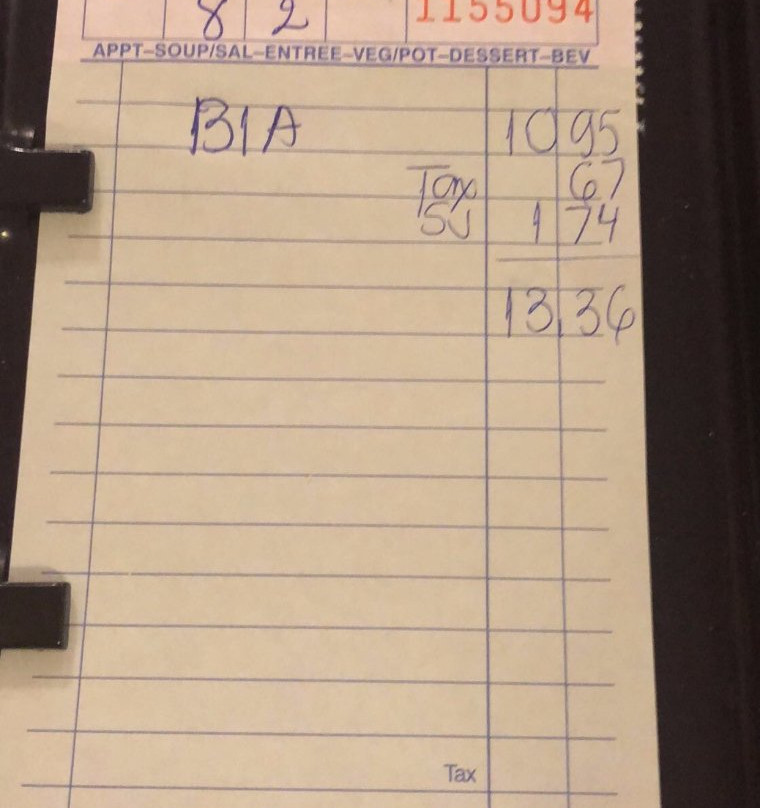 8 2 1155094
APPT–SOUP/SAL–ENTREE–VEG/POT–DESSERT–BEV
B1A 10 95
Tax 67
SU 1 74
13.36
Tax